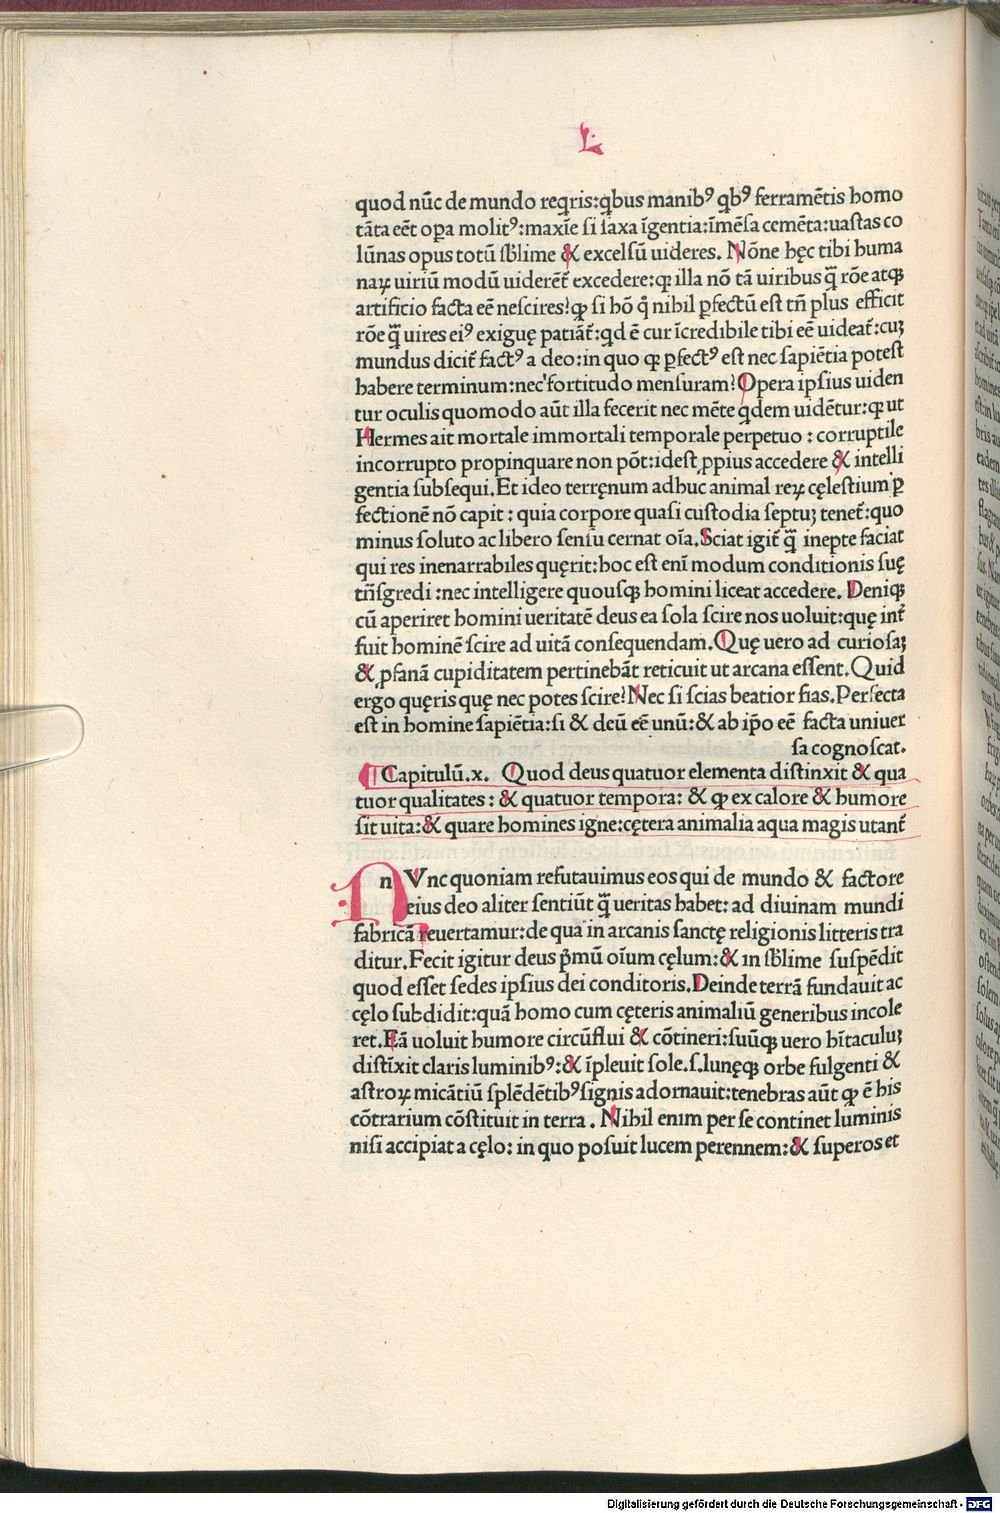 L
quod nūc de mundo reqris:qbus manibꝰ qbꝰ ferramētis homo
tāta eēt oꝑa molitꝰ:maxīe si saxa īgentia:īmēsa cemēta:uastas co
lūnas opus totū sƀlime & excelsū uideres. Nōne hęc tibi huma
naꝝ uiriū modū uiderēt̄ excedere:ꝙ illa nō tā uiribus q̄ rōe atqꝫ
artificio facta eē nescires?ꝙ si hō q̄ nihil ꝑfectū est tn̄ plus efficit
rōe q̄ uires eiꝰ exiguę patiāt̄:qd ē cur īcredibile tibi eē uideat̄:cuꝫ
mundus dicit̄ factꝰ a deo:in quo ꝙ ꝑfectꝰ est nec sapiētia potest
habere terminum:nec fortitudo mensuram? Opera ipsius uiden
tur oculis quomodo aūt illa fecerit nec mēte qdem uidētur:ꝙ ut
Hermes ait mortale immortali temporale perpetuo : corruptile
incorrupto propinquare non pōt:idest ꝓpius accedere & intelli
gentia subsequi.Et ideo terręnum adhuc animal reꝝ cęlestium ꝑ
fectionē nō capit : quia corpore quasi custodia septuꝫ tenet̄:quo
minus soluto ac libero sensu cernat oīa.Sciat igit̄ q̄ inepte faciat
qui res inenarrabiles quęrit:hoc est enī modum conditionis suę
tn̄sgredi :nec intelligere quousqꝫ homini liceat accedere. Deniqꝫ
cū aperiret homini ueritatē deus ea sola scire nos uoluit:quę int̄
fuit hominē scire ad uitā consequendam.Quę uero ad curiosaꝫ
& ꝓfanā cupiditatem pertinebāt reticuit ut arcana essent.Quid
ergo quęris quę nec potes scire?Nec si scias beatior fias.Perfecta
est in homine sapiētia:si & deū eē unū:& ab ip̄o eē facta uniuer
sa cognoscat.
¶ Capitulū.x. Quod deus quatuor elementa distinxit & qua
tuor qualitates : & quatuor tempora: & ꝙ ex calore & humore
sit uita:& quare homines igne:cętera animalia aqua magis utant̄
n Vnc quoniam refutauimus eos qui de mundo & factore
eius deo aliter sentiūt q̄ ueritas habet: ad diuinam mundi
fabricā reuertamur:de qua in arcanis sanctę religionis litteris tra
ditur.Fecit igitur deus p̄mū oīum cęlum:& in sƀlime suspēdit
quod esset sedes ipsius dei conditoris.Deinde terrā fundauit ac
cęlo subdidit:quā homo cum cęteris animaliū generibus incole
ret.Eā uoluit humore circūflui & cōtineri:suūqꝫ uero hītaculuꝫ
distīxit claris luminibꝰ:& īpleuit sole.s.lunęqꝫ orbe fulgenti &
astroꝝ micātiū splēdētibꝰ signis adornauit:tenebras aūt ꝙ ē his
cōtrarium cōstituit in terra . Nihil enim per se continet luminis
nisi accipiat a cęlo: in quo posuit lucem perennem:& superos et
Digitalisierung gefördert durch die Deutsche Forschungsgemeinschaft - DFG